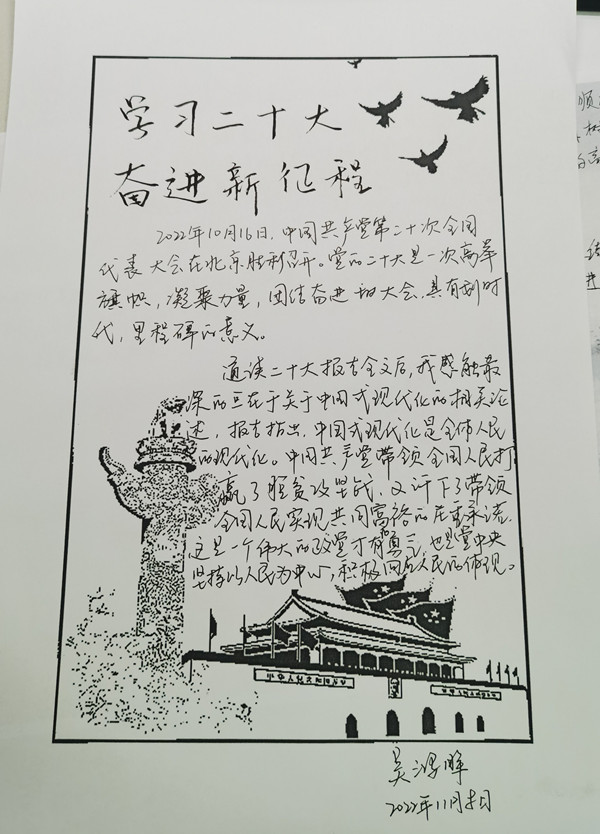 学习二十大
奋进新征程
2022年10月16日,中国共产党第二十次全国
代表大会在北京胜利召开。党的二十大是一次高举
旗帜,凝聚力量,团结奋进的大会,具有划时
代,里程碑的意义。
通读二十大报告全文后,我感触最
深的是在于关于中国式现代化的相关论
述,报告指出,中国式现代化是全体人民
的现代化。中国共产党带领全国人民打
赢了脱贫攻坚战,又许下了带领
全国人民实现共同富裕的庄重承诺,
这是一个伟大的政党才有的,也是党中央
坚持以人民为中心,积极回应人民的体现。
吴
2022年11月日